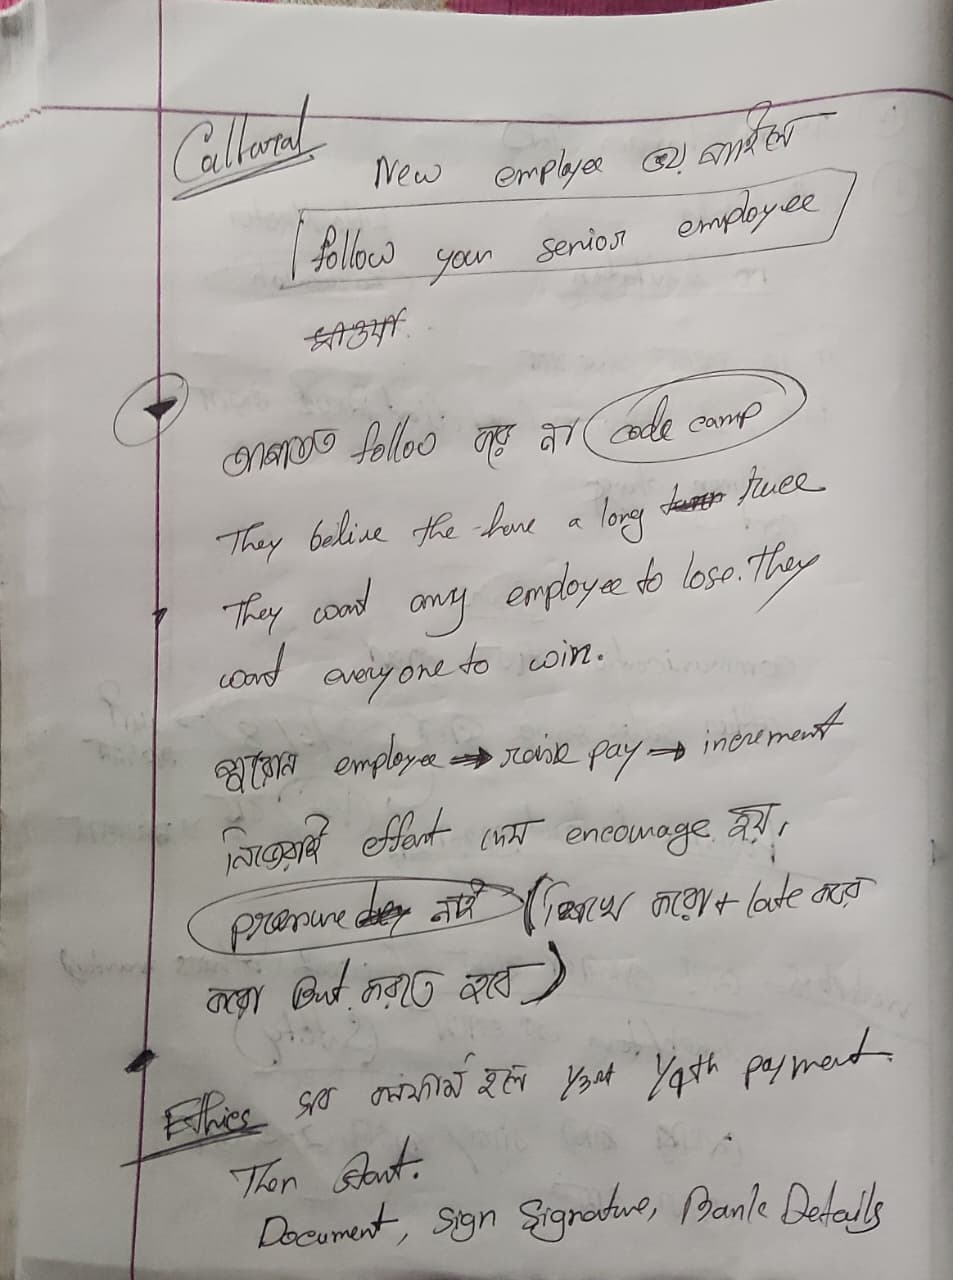 Cultural
New employee
follow your senior employee
follow করে না code camp
They belive the have a long tree
They want any employee to lose. They
want everyone to win.
employee → raise pay → increment
effort দেয় encourage হয়।
pressure নাই ( করো + late করে
করো But করতে হবে )
Ethics সব কনফার্ম হলে 1/3rd 1/4th payment.
Then Start.
Document, Sign Signature, Bank Details